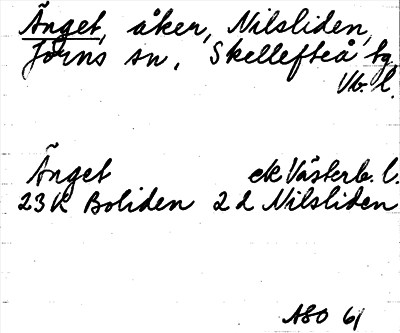 Änget, åker, Nilsliden,
Jörns sn, Skellefteå tg,
Vb. l.
Änget ek Västerb. l.
23K Boliden 2 d Nilsliden
ASO 61